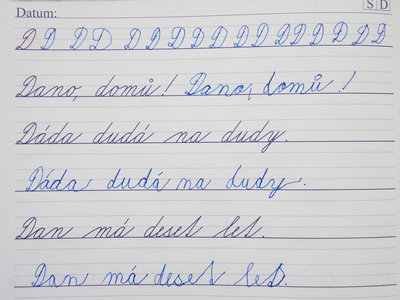 Datum: S D
D D D D D D D D D D D D D D D
Dano, domů! Dano, domů!
Dáda dudá na dudy.
Dáda dudá na dudy.
Dan má deset let.
Dan má deset let.